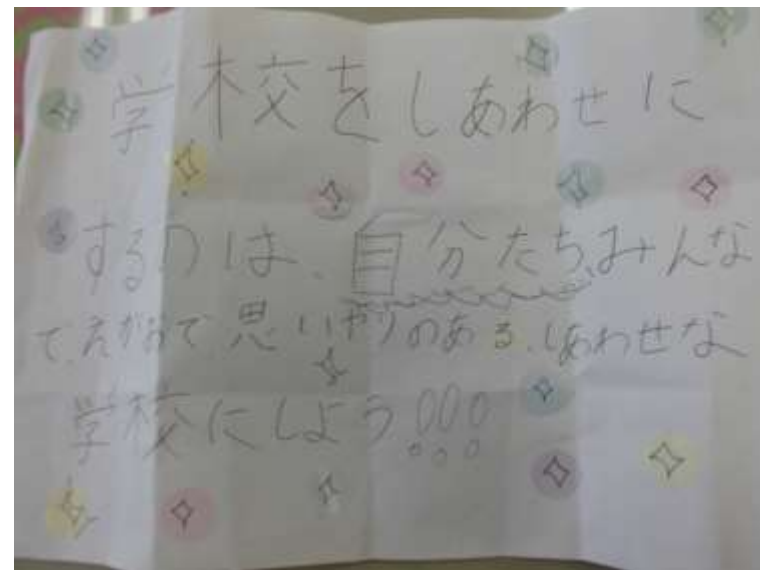 学校をしあわせに
するのは、自分たちみんな
で、えがおで、思いやりのある、しあわせな
学校にしよう!!!